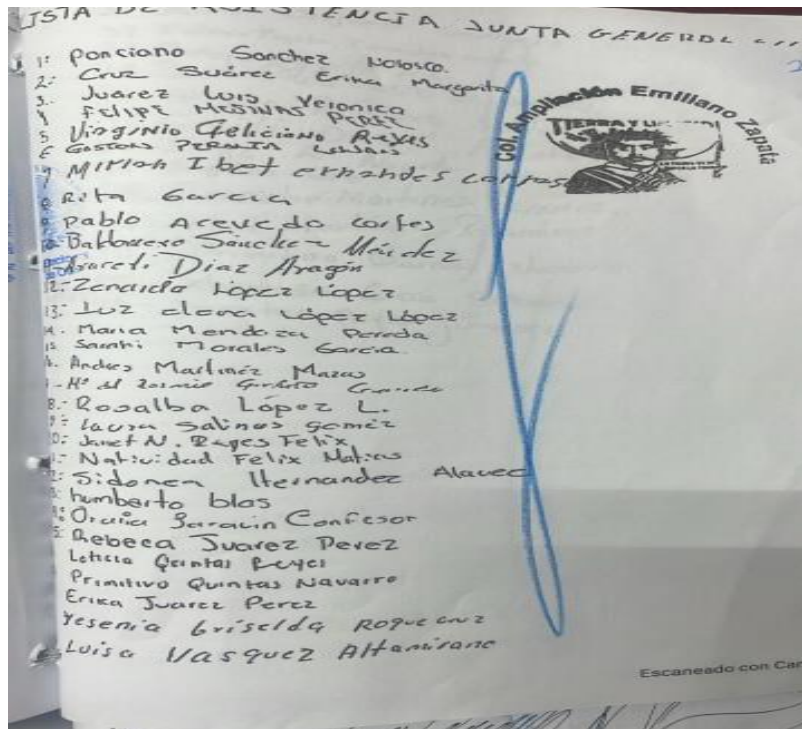 LISTA DE ASISTENCIA JUNTA GENERAL
1: Ponciano Sanchez Nolosco.
2: Cruz Suárez Erika Margarita
3. Juarez Luis Veronica
4 FELIPE MESINAS PEREZ
5 Virginio Feliciano Reyes
6 GASTON PERALTA
7 Miriah Ibet ernandes
8 Rita Garcia
9 Pablo Acevedo cortes
10 Baltazar Sánchez Méndez
Araceli Díaz Aragón
12: Zenaida López López
13: Luz elena López López
14. Maria Mendoza Pereda
15 Sarahi Morales Garcia
Andres Martinez
Ma del Rosario
8.- Rosalba López L.
9: laura Salinas gomez
0: Janet N. Reyes Felix
1.- Natividad Felix Matias
2: Sidonea Hernandez
3: humberto blas
4: Confesor
5: Rebeca Juarez Perez
Leticia Quintas Reyes
Primitivo Quintas Navarro
Erika Juarez Perez
Yesenia Griselda Roque cruz
Luisa Vasquez Altamirano
Col. Ampliación Emiliano Zapata
TIERRA Y
Escaneado con Car